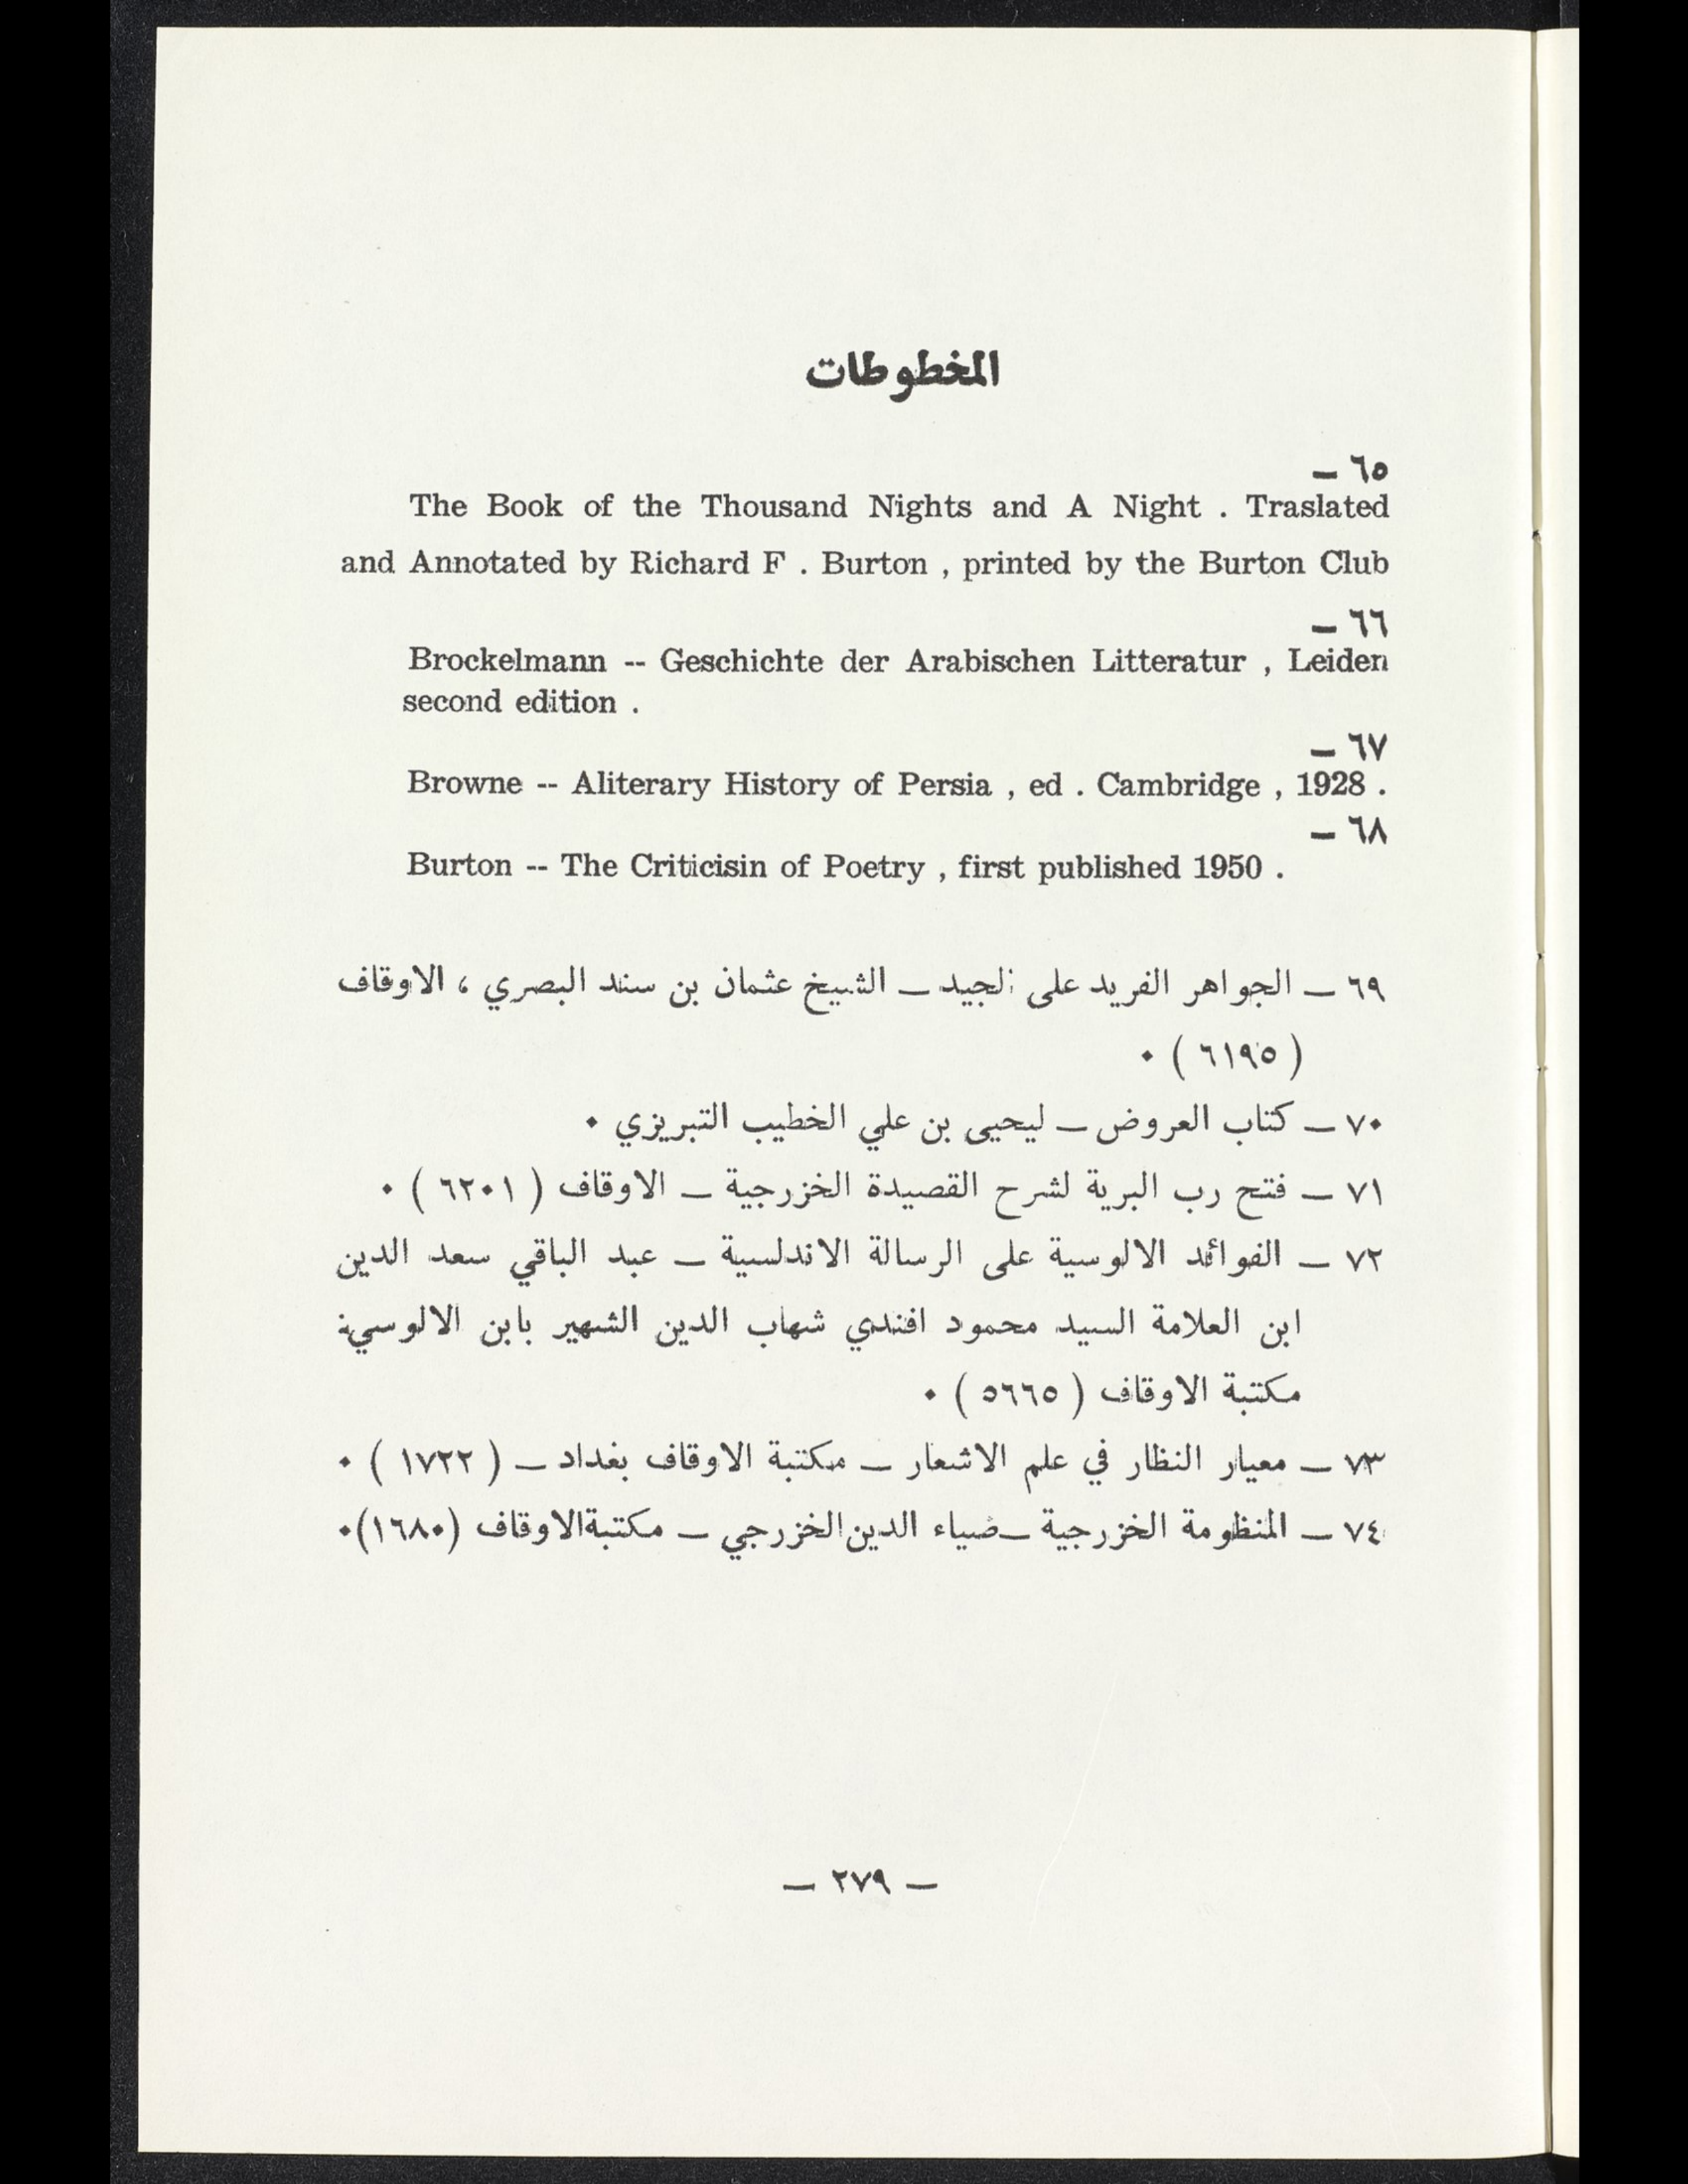 المخطوطات
٦٥ –
The Book of the Thousand Nights and A Night . Traslated
and Annotated by Richard F . Burton , printed by the Burton Club
٦٦ –
Brockelmann -- Geschichte der Arabischen Litteratur , Leiden
second edition .
٦٧ –
Browne -- Aliterary History of Persia , ed . Cambridge , 1928 .
٦٨ –
Burton -- The Criticisin of Poetry , first published 1950 .
٦٩ – الجواهر الفريد على الجيد – الشيخ عثمان بن سند البصري ، الاوقاف
( ٦١٩٥ ) ٠
٧٠ – كتاب العروض – ليحيى بن علي الخطيب التبريزي ٠
٧١ – فتح رب البرية لشرح القصيدة الخزرجية – الاوقاف ( ٦٢٠١ ) ٠
٧٢ – الفوائد الالوسية على الرسالة الاندلسية – عبد الباقي سعد الدين
ابن العلامة السيد محمود افندي شهاب الدين الشهير بابن الالوسي:
مكتبة الاوقاف ( ٥٦٦٥ ) ٠
٧٣ – معيار النظار في علم الاشعار – مكتبة الاوقاف بغداد – ( ١٧٢٢ ) ٠
٧٤ – المنظومة الخزرجية –ضياء الدين الخزرجي – مكتبةالاوقاف (١٦٨٠)٠
– ٢٧٩ –